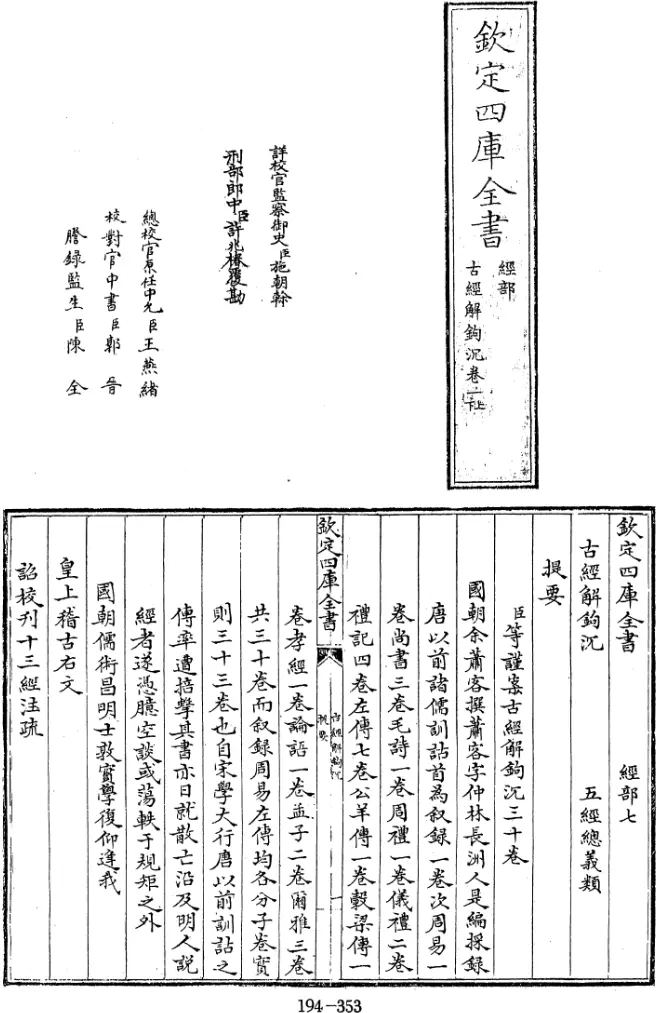 欽定四庫全書
經部
古經解鉤沉卷一上下
詳校官監察御史臣施朝幹
刑部郎中臣許兆椿覆勘
總校官原任中允臣王燕緒
校對官中書臣郭晉
謄錄監生臣陳全
欽定四庫全書 經部七
古經解鉤沉 五經總義類
提要
臣等謹案古經解鉤沉三十卷
國朝余蕭客撰蕭客字仲林長洲人是編採錄
唐以前諸儒訓詁首為叙錄一卷次周易一
卷尚書三卷毛詩一卷周禮一卷儀禮二卷
禮記四卷左傳七卷公羊傳一卷穀梁傳一
欽定四庫全書
古經解鉤沉
提要
一
卷孝經一卷論語一卷孟子二卷爾雅三卷
共三十卷而叙錄周易左傳均各分子卷實
則三十三卷也自宋學大行唐以前訓詁之
傳率遭掊擊其書亦日就散亡沿及明人說
經者遂憑臆空談或蕩軼于規矩之外
國朝儒術昌明士敦實學復仰逢我
皇上稽古右文
詔校刊十三經注疏
194-353